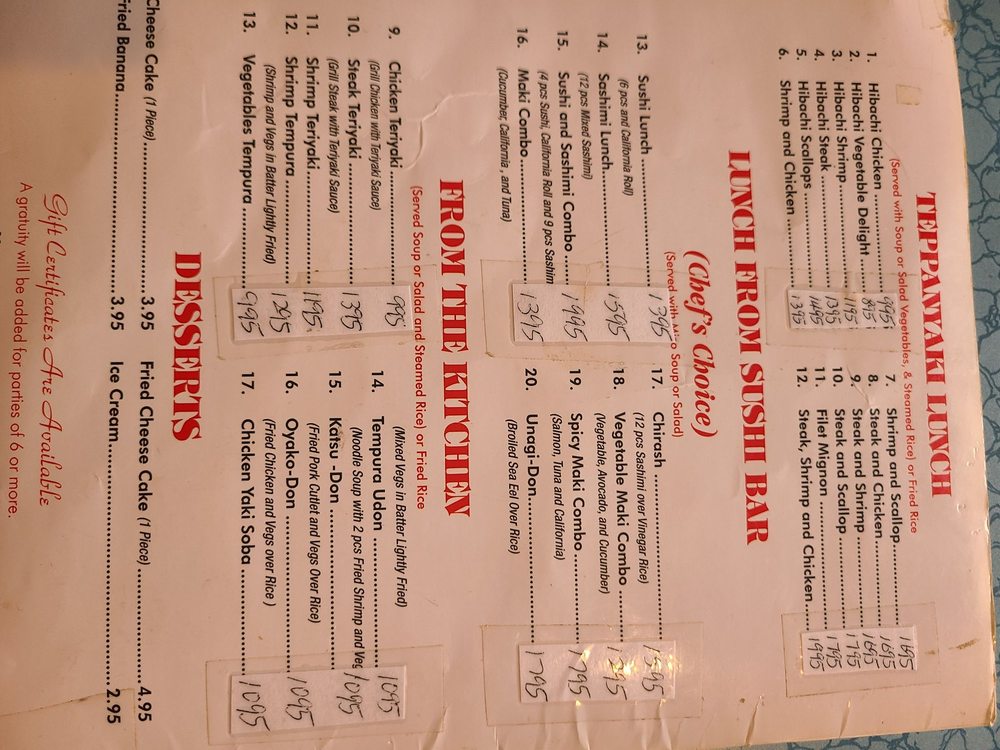 TEPPANYAKI LUNCH
(Served with Soup or Salad Vegetables, & Steamed Rice) or Fried Rice
1. Hibachi Chicken 995
2. Hibachi Vegetable Delight 895
3. Hibachi Shrimp 1195
4. Hibachi Steak 1395
5. Hibachi Scallops 1495
6. Shrimp and Chicken 1395
7. Shrimp and Scallop 1695
8. Steak and Chicken 1695
9. Steak and Shrimp 1695
10. Steak and Scallop 1795
11. Filet Mignon 1795
12. Steak, Shrimp and Chicken 1995
LUNCH FROM SUSHI BAR
(Chef's Choice)
(Served with Miso Soup or Salad)
13. Sushi Lunch 1395
(6 pcs and California Roll)
14. Sashimi Lunch 1595
(12 pcs Mixed Sashimi)
15. Sushi and Sashimi Combo 1995
(4 pcs Sushi, California Roll and 9 pcs Sashim
16. Maki Combo 1395
(Cucumber, California , and Tuna)
17. Chirash 1595
(12 pcs Sashimi over Vinegar Rice)
18. Vegetable Maki Combo 1295
(Vegetable, Avocado, and Cucumber)
19. Spicy Maki Combo 1795
(Salmon, Tuna and California)
20. Unagi-Don 1795
(Broiled Sea Eel Over Rice)
FROM THE KITCHEN
(Served Soup or Salad and Steamed Rice) or Fried Rice
9. Chicken Teriyaki 995
(Grill Chicken with Teriyaki Sauce)
10. Steak Teriyaki 1395
(Grill Steak with Teriyaki Sauce)
11. Shrimp Teriyaki 1195
12. Shrimp Tempura 1295
(Shrimp and Vegs in Batter Lightly Fried)
13. Vegetables Tempura 995
(Mixed Vegs in Batter Lightly Fried)
14. Tempura Udon 1095
(Noodle Soup with 2 pcs Fried Shrimp and Veg
15. Katsu -Don 1095
(Fried Pork Cutlet and Vegs Over Rice)
16. Oyako-Don 1095
(Fried Chicken and Vegs over Rice )
17. Chicken Yaki Soba 1095
DESSERTS
Cheese Cake (1 Piece) 3.95
Fried Banana 3.95
Fried Cheese Cake (1 Piece) 4.95
Ice Cream 2.95
Gift Certificates Are Available
A gratuity will be added for parties of 6 or more.